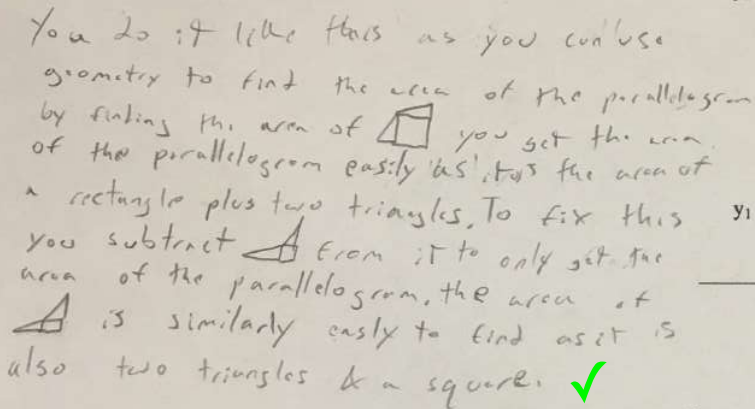 You do it like this as you can use
geometry to find the area of the parallelogram
by finding the area of you get the area
of the parallelogram easily as its the area of
a rectangle plus two triangles. To fix this
y1
you subtract from it to only get the
area of the parallelogram. the area of
is similarly easly to find as it is
also two triangles & a square.